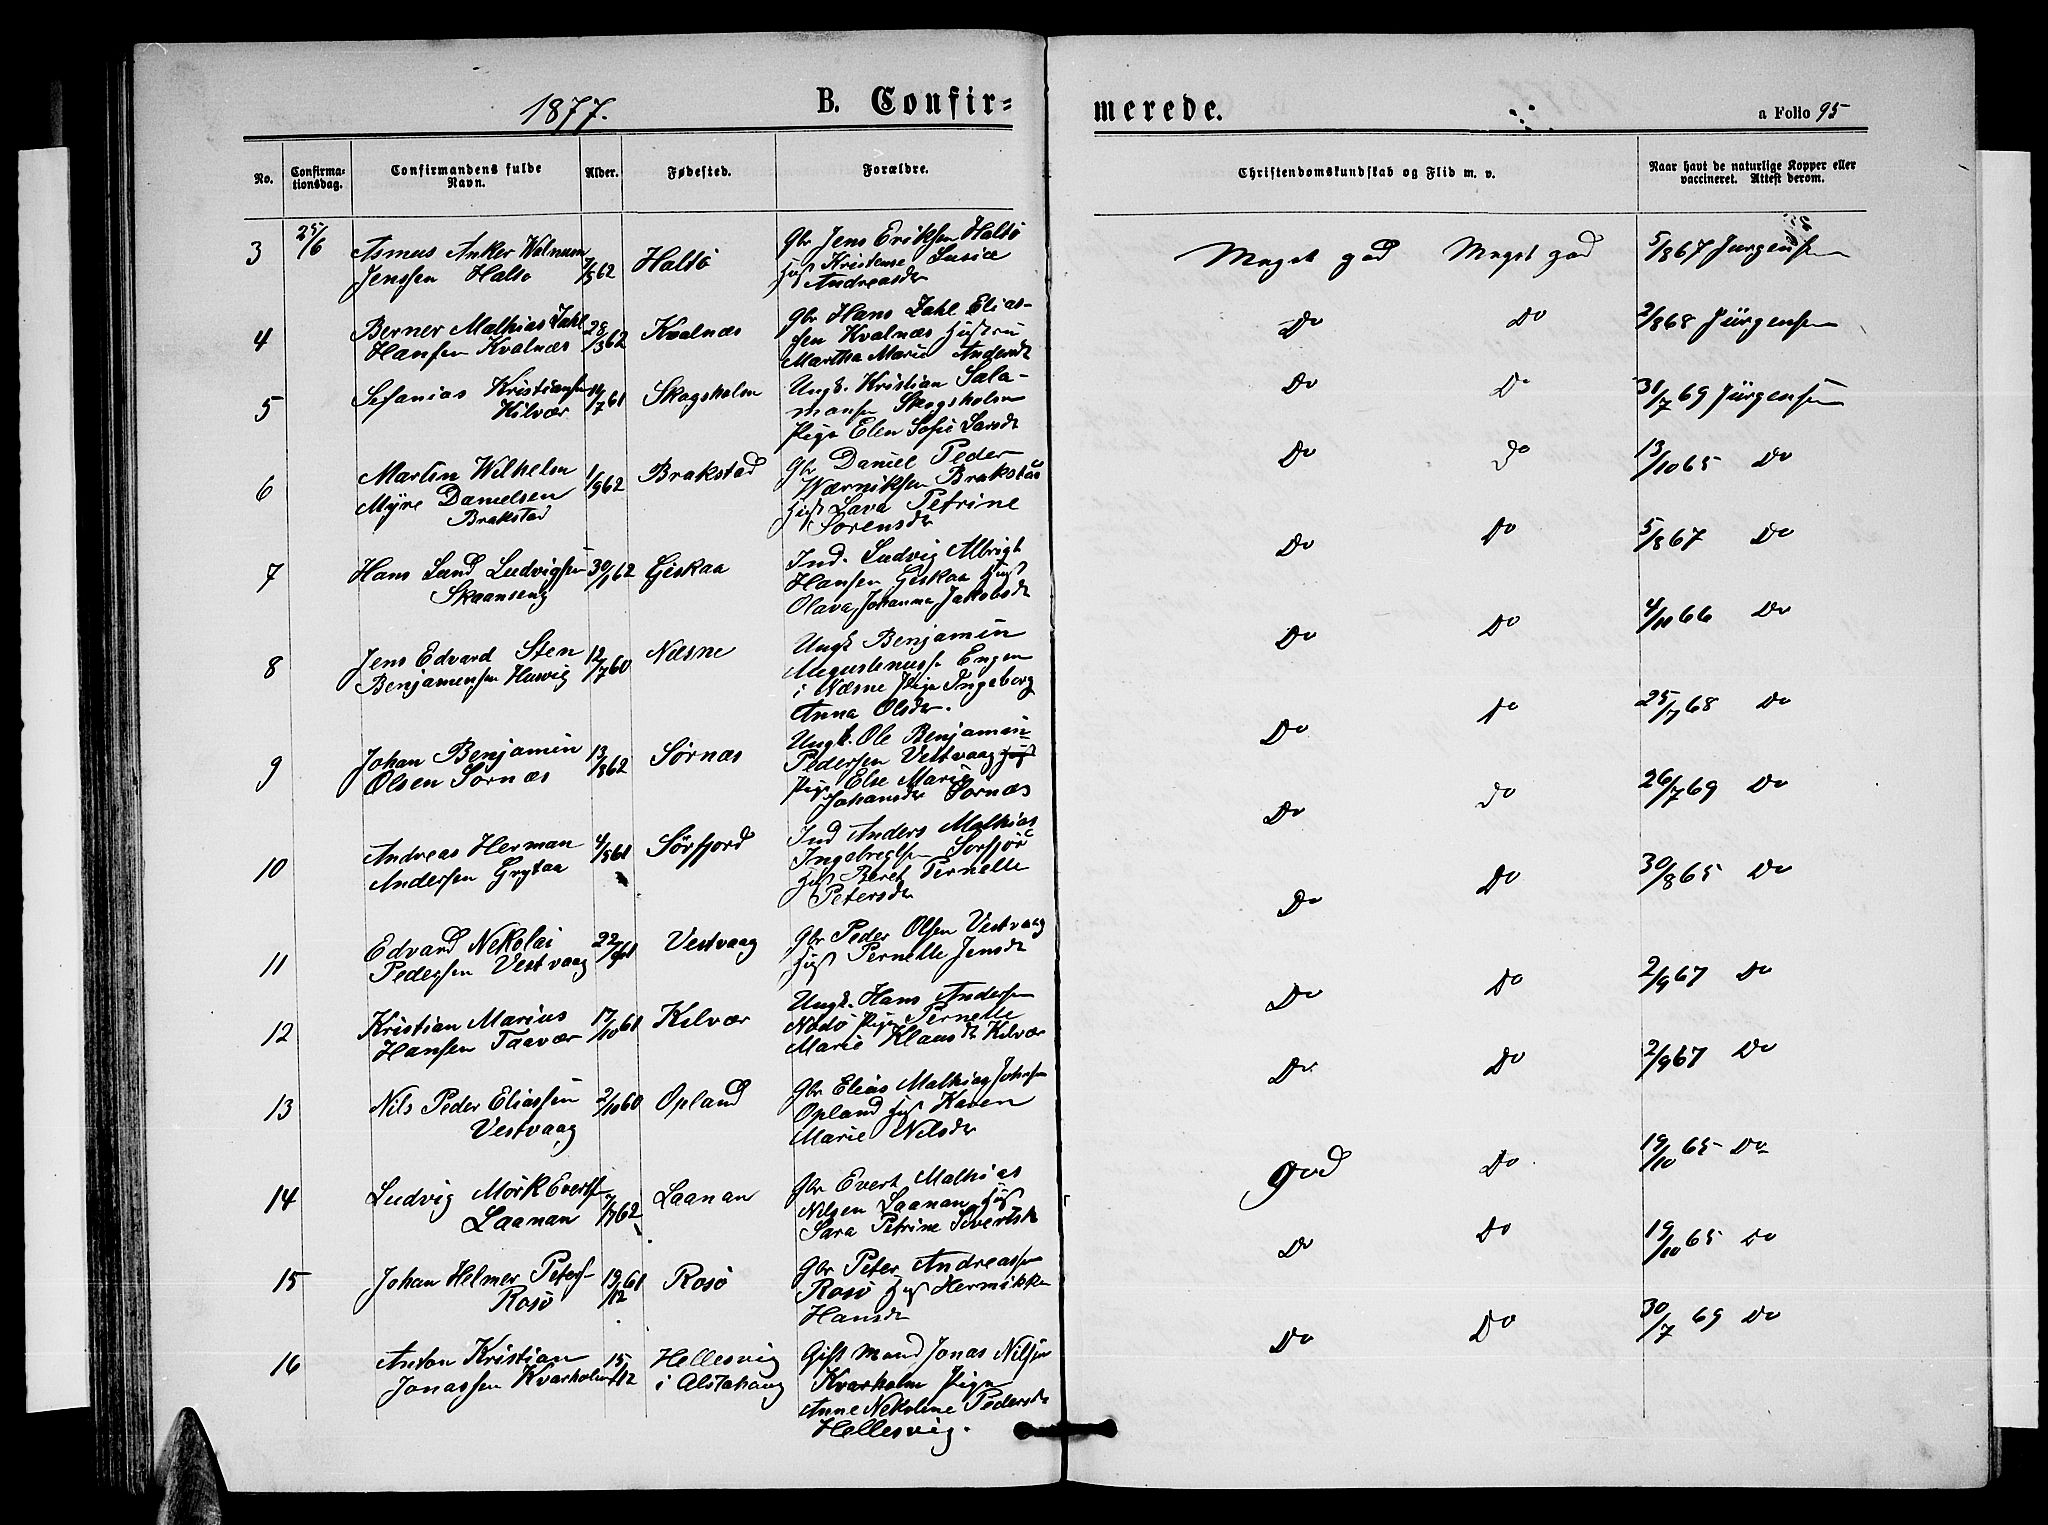 1877.
B. Confir=
merede.
a Folio 95
No.
Confirma-
tionsdag.
Confirmandens fulde
Navn.
Alder.
Fødested.
Forældre.
Christendomskundskab og Flid m. v.
Naar havt de naturlige Kopper eller
vaccineret. Attest derom.
3 25/6 Asmus Anker Walnum 7/5 62 Haltö Gbr Jens Eriksen Haltö Meget god Meget god 5/8 67 Jürgensen
Jenssen Haltö Hust Kristense Lusie
Andreasdr
4 Berner Mathias Dahl 28/3 62 Kvalnæs Gbr Hans Dahl Elias- Do Do 2/8 68 Jürgensen
Hansen Kvalnæs sen Kvalnæs Hustru
Martha Marie Andersdr
5 Sefanias Kristiansen 14/7 61 Skogsholm Ungk. Kristian Sala- Do Do 31/7 69 Jürgensen
Kilvær mansen Skogsholm
Pige Elen Sofie Larsdr
6 Martin Wilhelm 1/9 62 Brakstad Gbr Daniel Peder Do Do 13/10 65 Do
Myre Danielsen Wærniksen Brakstad
Brakstad Hust Lava Petrine
Sørensdr
7 Hans Lund Ludvigsen 30/1 62 Giskaa Ind. Ludvig Albrigt Do Do 5/8 67 Do
Skaanseng Hansen Giskaa Hust
Olava Johanna Jakobsdr
8 Jens Edvard Sten 12/7 60 Næsne Ungk Benjamin Do Do 4/10 66 Do
Benjaminsen Husvig Augustinussen Engen
i Næsne Pige Ingeborg
Anna Olsdr.
9 Johan Benjamin 13/3 62 Sørnæs Ungk. Ole Benjamin Do Do 25/7 68 Do
Olsen Sørnæs Pedersen Vestvaag Hust
Pige Else Marie
Johansdr Sørnæs
10 Andreas Herman 4/5 61 Sörfjord Ind Anders Mathias Do Do 26/7 69 Do
Andersen Grytaa Ingebregtsen Sörfjor
Hust Beret Pernelle
Petersdr
11 Edvard Nekolai 22/9 61 Vestvaag Gbr Peder Olsen Vestvaag Do Do 30/8 65 Do
Pedersen Vestvaag Hust Pernelle Jensdr
12 Kristian Marius 17/10 61 Kilvær Ungk. Hans Andersen Do Do 2/9 67 Do
Hansen Taavær Nodö Pige Pernelle
Marie Klausdr Kilvær
13 Nils Peder Eliassen 2/10 60 Opland Gbr Elias Mathias Johnsen Do Do 2/9 67 Do
Vestvaag Opland Hust Karen
Marie Nilsdr
14 Ludvig Mörk Evertsen 7/7 62 Laanan Gbr Evert Mathias god Do 19/10 65 Do
Laanan Nilsen Laanan Hust
Sara Petrine Sivertsdr
15 Johan Helmer Peters- 19/12 61 Rosö Gbr Peter Andreassen Do Do 19/10 65 Do
Rosö Rosö Hust Hermikke
Hansdr
16 Anton Kristian 15/12 Hellesvig Gift Mand Jonas Nilsen Do Do 30/7 69 Do
Jonassen Kvarholm i Alstahaug Kvarholm Pige
Anne Nekoline Pedersdr
Hellesvig.